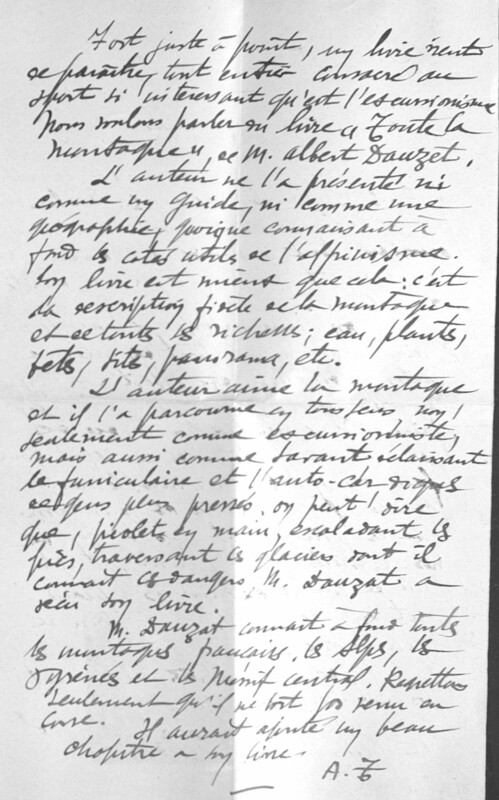 Fort juste à point, un livre vient
de paraître, tout entier consacré au
sport si intéressant qu'est l'escursionisme
Nous voulons parler du livre "Toute la
montagne", de M. albert Dauzet.
L'auteur ne l'a présenté ni
comme un guide, ni comme une
géographie, quoique connaissant à
fond les cotés utiles de l'alpinisme.
Son livre est mieux que cela: c'est
la description fidèle de la montagne
et de toutes les richesses; eau, plantes,
bêtes, sites, panorama, etc.
L'auteur aime la montagne
et il l'a parcourue en tous sens non
seulement comme escursioniste,
mais aussi comme savant délaissant
le funiculaire et l'auto-car
des gens plus pressés. on peut dire
que, piolet en main, escaladant les
pics, traversant les glaciers dont il
connait les dangers, M. Dauzat a
vécu son livre.
M. Dauzat connait à fond toutes
les montagnes françaises, les Alpes, les
Pyrénées et le Massif central. Regrettons
seulement qu'il ne soit pas venu en
Corse. Il aurait ajouté un beau
chapitre a son livre.
A. F